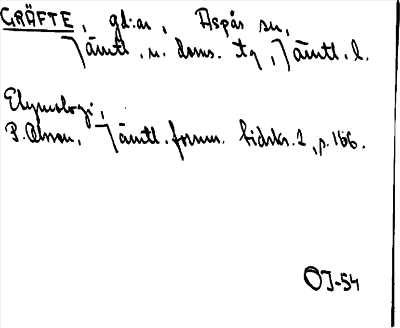 GRÄFTE, gd:ar, Aspås sn,
Jämtl. n. doms. tg, Jämtl. l.
Etymologi,
P. Olsson, Jämtl. fornm. tidskr. 1, p. 166.
OJ-54